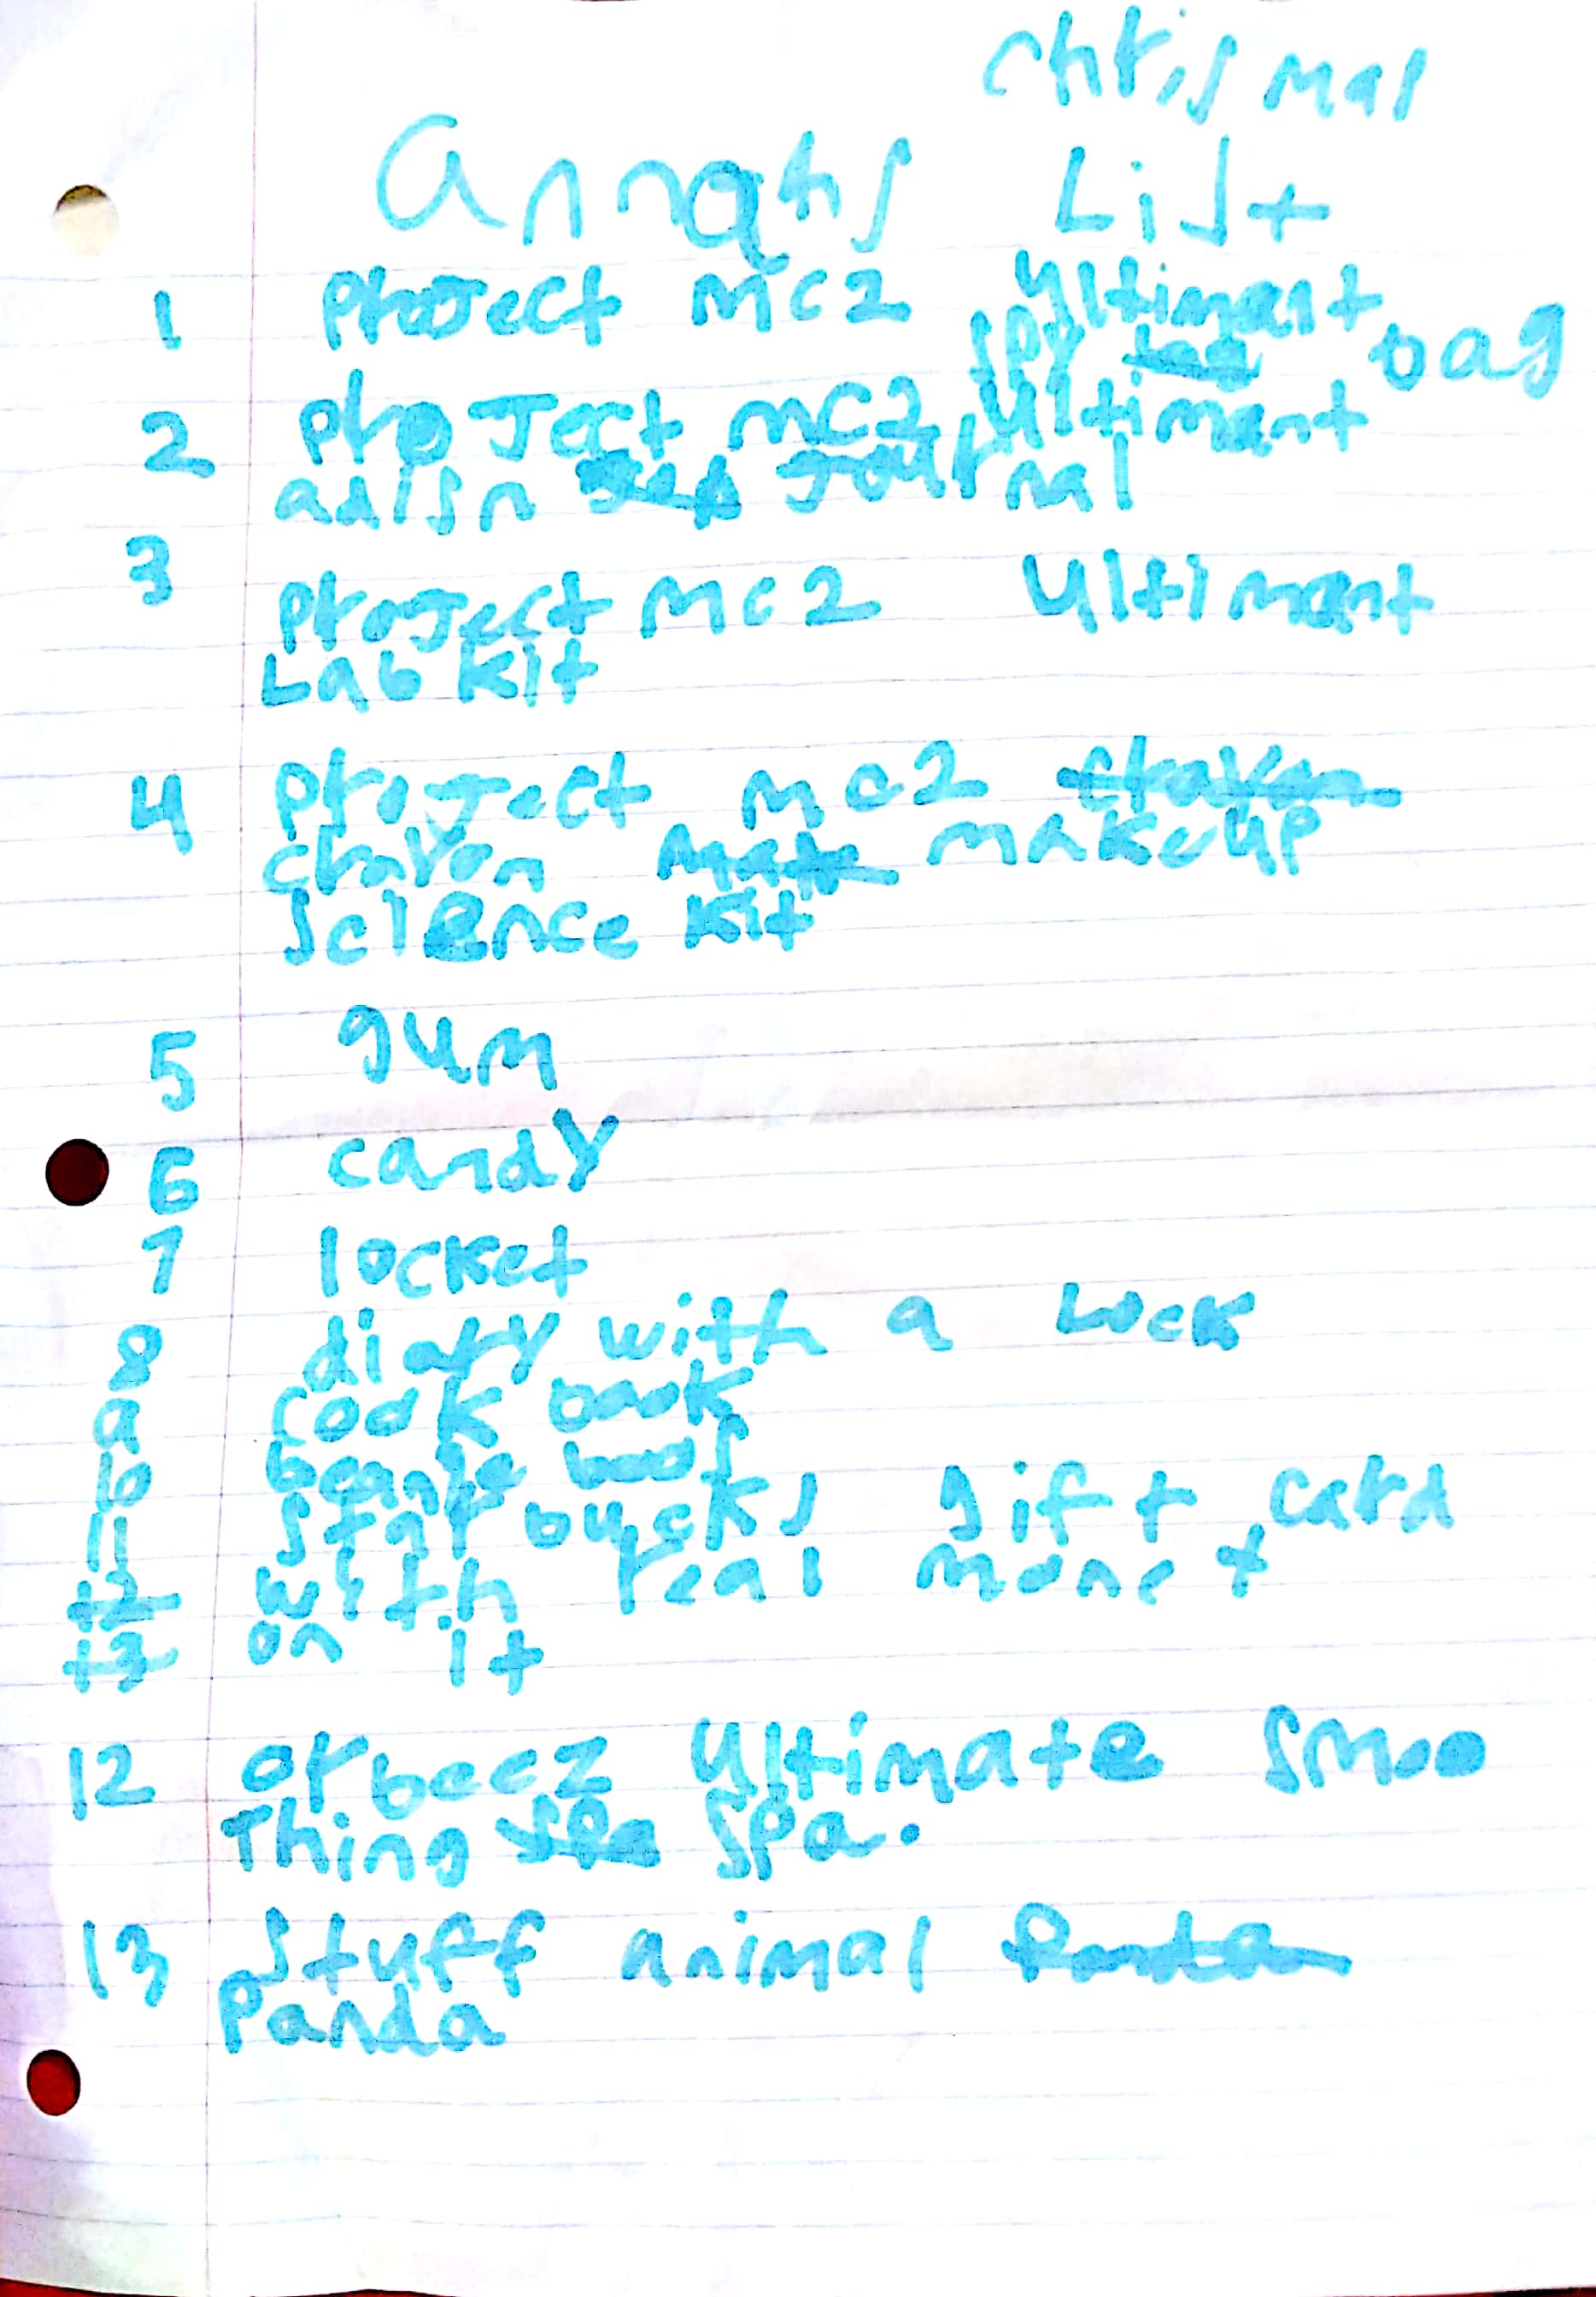 chrismas
annahs List
1 project mc2 ultimant
spy bag
2 project mc2 ultimant
adisn journal
3
project mc2 ultimant
Lab kit
4 project mc2
crayon makeup
science kit
5 gum
6 candy
7 locket
8 diary with a Lock
9 cook book
10 beanie boos
11 star bucks gift card
12 with real money
13 on it
12 orbeez ultimate smoo
Thing spa.
13 stuff animal
panda